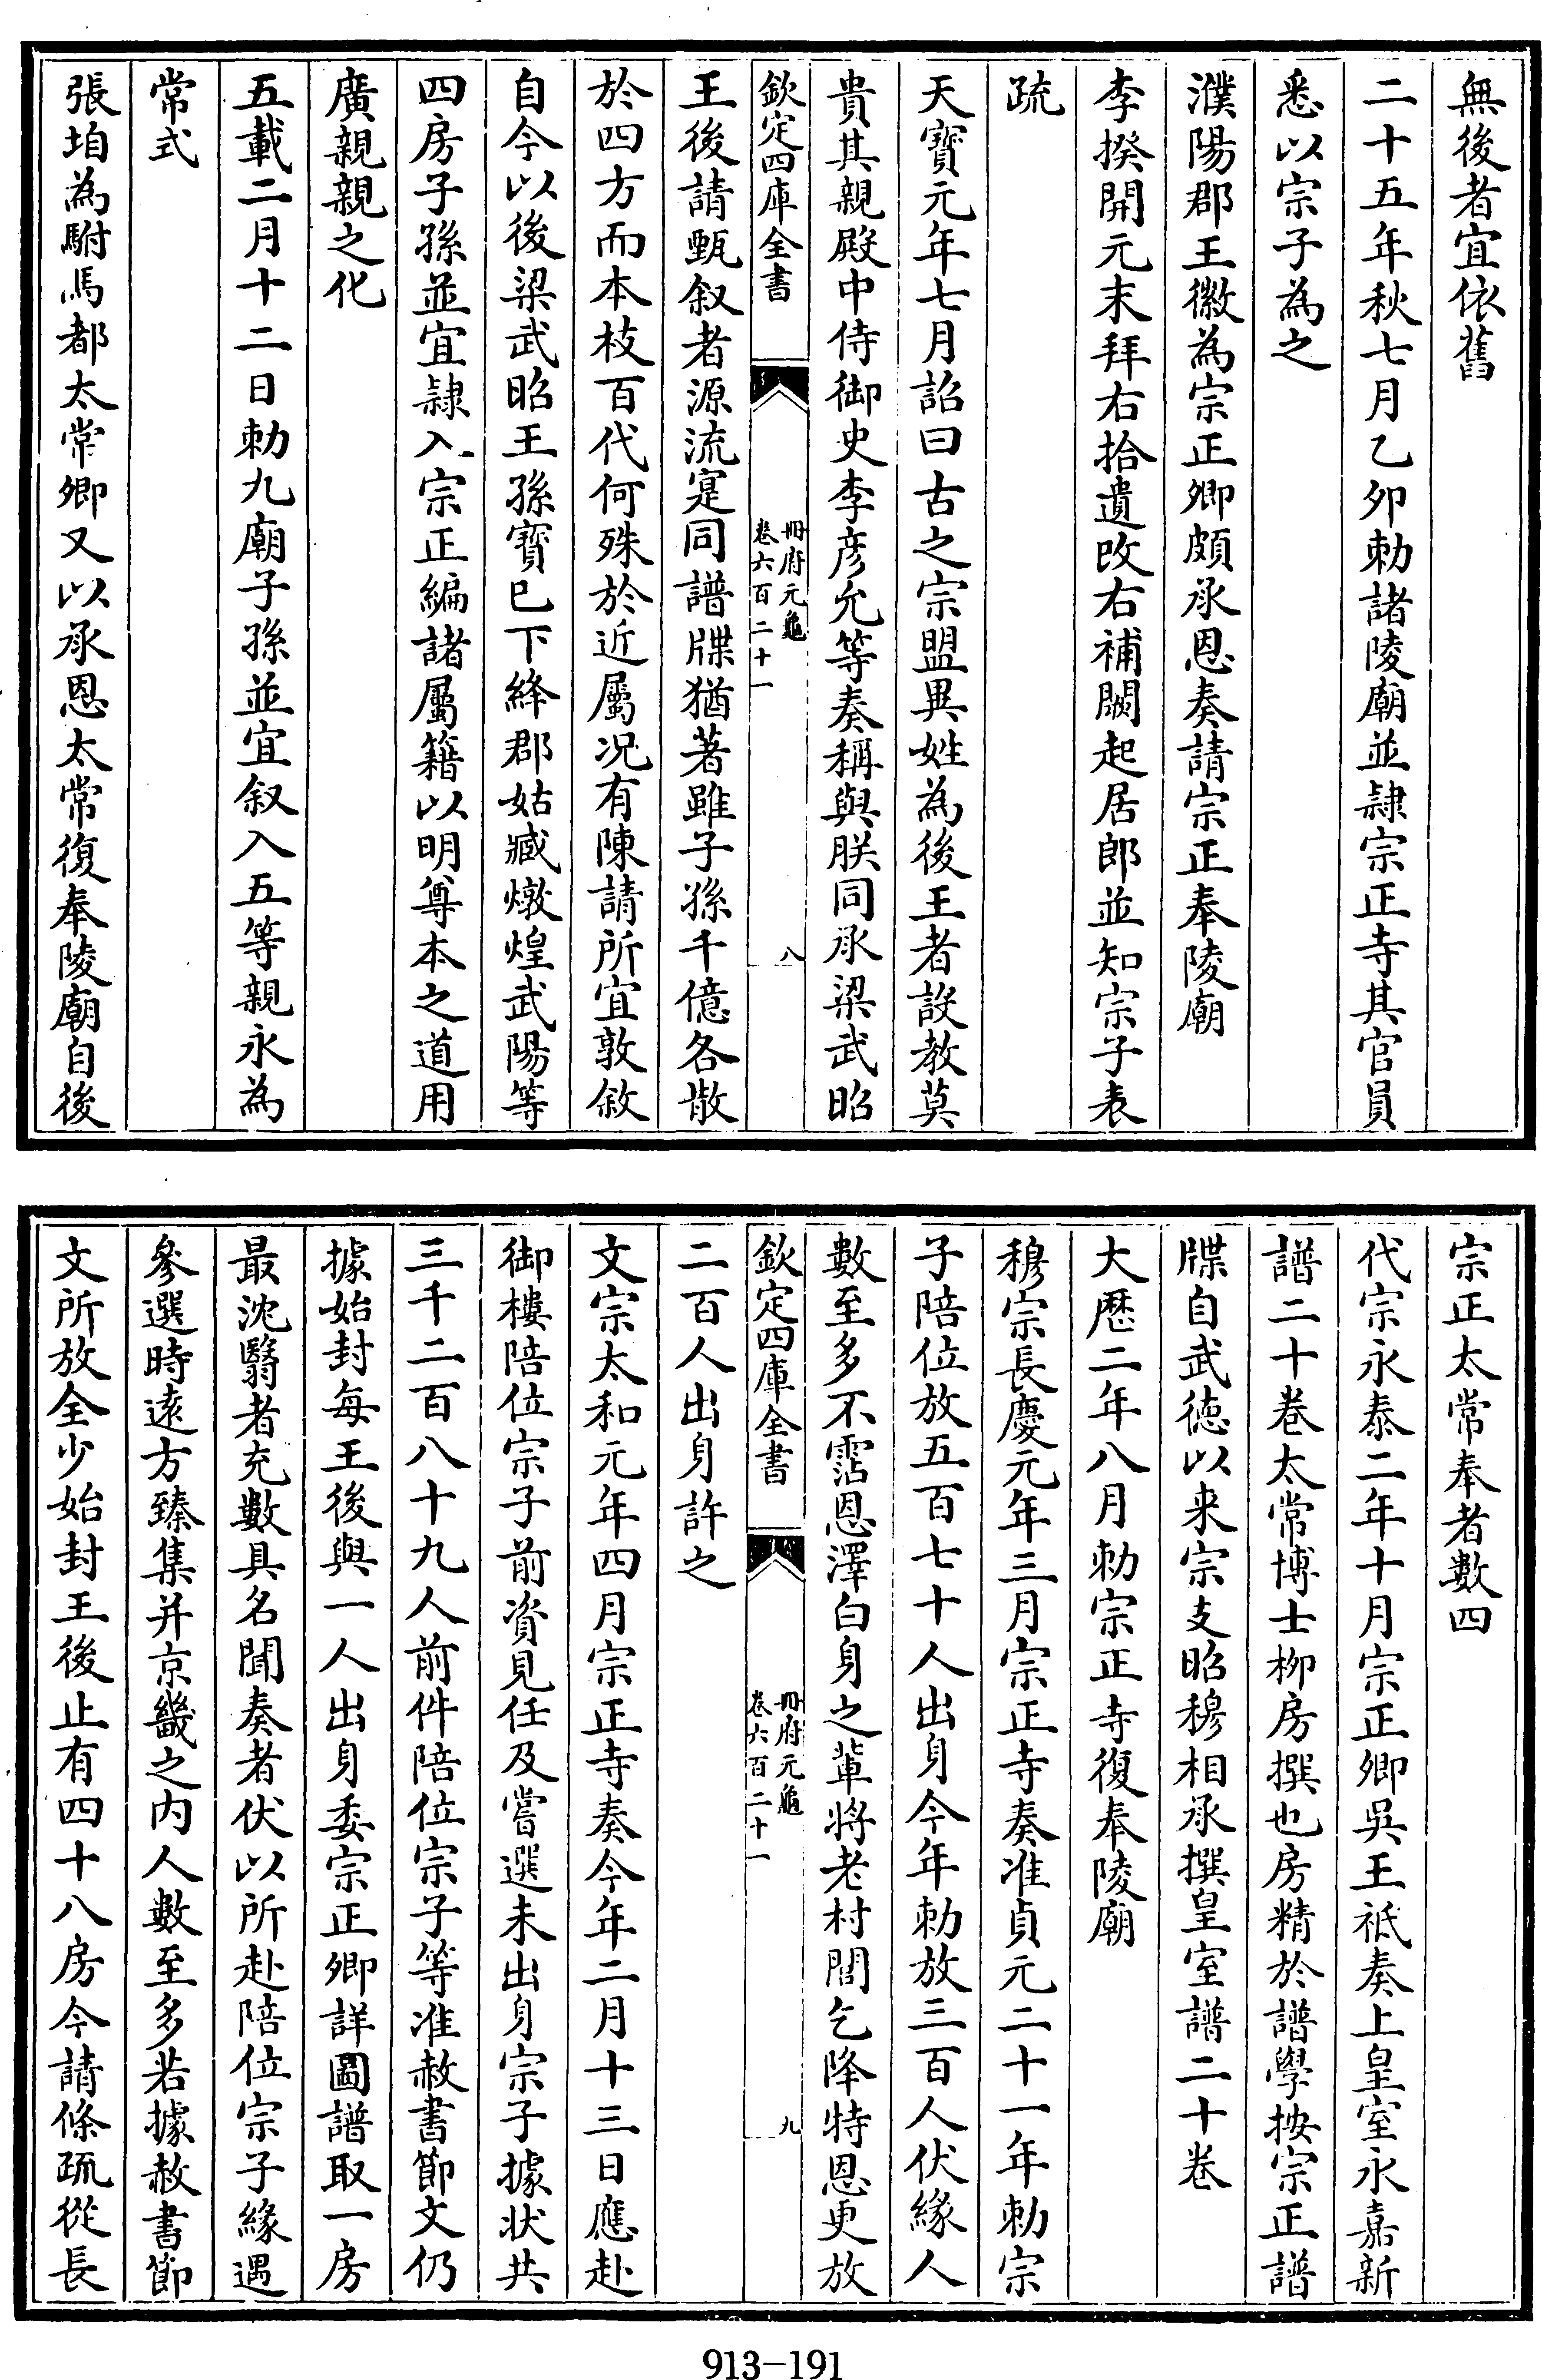 無後者宜依舊
二十五年秋七月乙卯勅諸陵廟並隷宗正寺其官員
悉以宗子為之
濮陽郡王徽為宗正卿頗承恩奏請宗正奉陵廟
李揆開元末拜右拾遺改右補闕起居郎並知宗子表
疏
天寳元年七月詔曰古之宗盟異姓為後王者設教莫
貴其親殿中侍御史李彦允等奏稱與朕同承梁武昭
欽定四庫全書
冊府元龜
卷六百二十一
八
王後請甄叙者源流寔同譜牒猶著雖子孫千億各散
於四方而本枝百代何殊於近屬况有陳請所宜敦敘
自今以後梁武昭王孫寳已下絳郡姑臧燉煌武陽等
四房子孫並宜隷入宗正編諸屬籍以明尊本之道用
廣親親之化
五載二月十二日勅九廟子孫並宜叙入五等親永為
常式
張垍為駙馬都太常卿又以承恩太常復奉陵廟自後
宗正太常奉者數四
代宗永泰二年十月宗正卿吳王祗奏上皇室永嘉新
譜二十卷太常博士柳房撰也房精於譜學按宗正譜
牒自武徳以来宗支昭穆相承撰皇室譜二十卷
大厯二年八月勅宗正寺復奉陵廟
穆宗長慶元年三月宗正寺奏准貞元二十一年勅宗
子陪位放五百七十人出身今年勅放三百人伏緣人
數至多不霑恩澤白身之輩將老村閭乞降特恩更放
欽定四庫全書
冊府元龜
卷六百二十一
九
二百人出身許之
文宗太和元年四月宗正寺奏今年二月十三日應赴
御樓陪位宗子前資見任及嘗選未出身宗子據状共
三千二百八十九人前件陪位宗子等准赦書節文仍
據始封每王後與一人出身委宗正卿詳圖譜取一房
最沈翳者充數具名聞奏者伏以所赴陪位宗子緣遇
參選時遠方臻集并京畿之内人數至多若據赦書節
文所放全少始封王後止有四十八房今請條疏從長
913-191